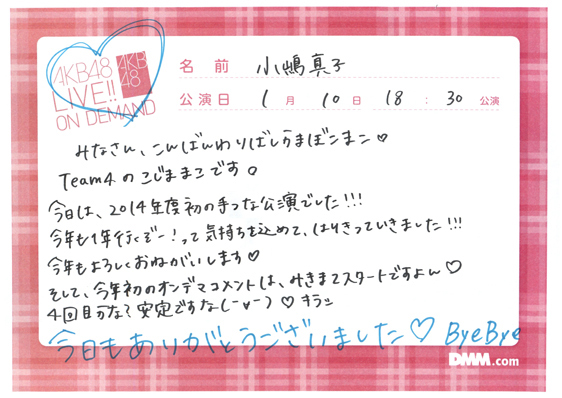 AKB48
LIVE!!
ON DEMAND
AKB
48
名前 小嶋真子
公演日 1月10日 18:30公演
みなさん、こんばんわりばしうまぼこまこ♡
Team4のこじままこです。
今日は、2014年度初の手つな公演でした!!!
今年も1年行くぞー!って気持ちを込めて、はりきっていきました!!!
今年もよろしくおねがいします♡
そして、今年初のオンデマコメントは、みきまこスタートですよん♡
4回目かな? 安定ですな(ーvー)♡キラッ
今日もありがとうございました♡ ByeBye
DMM.com